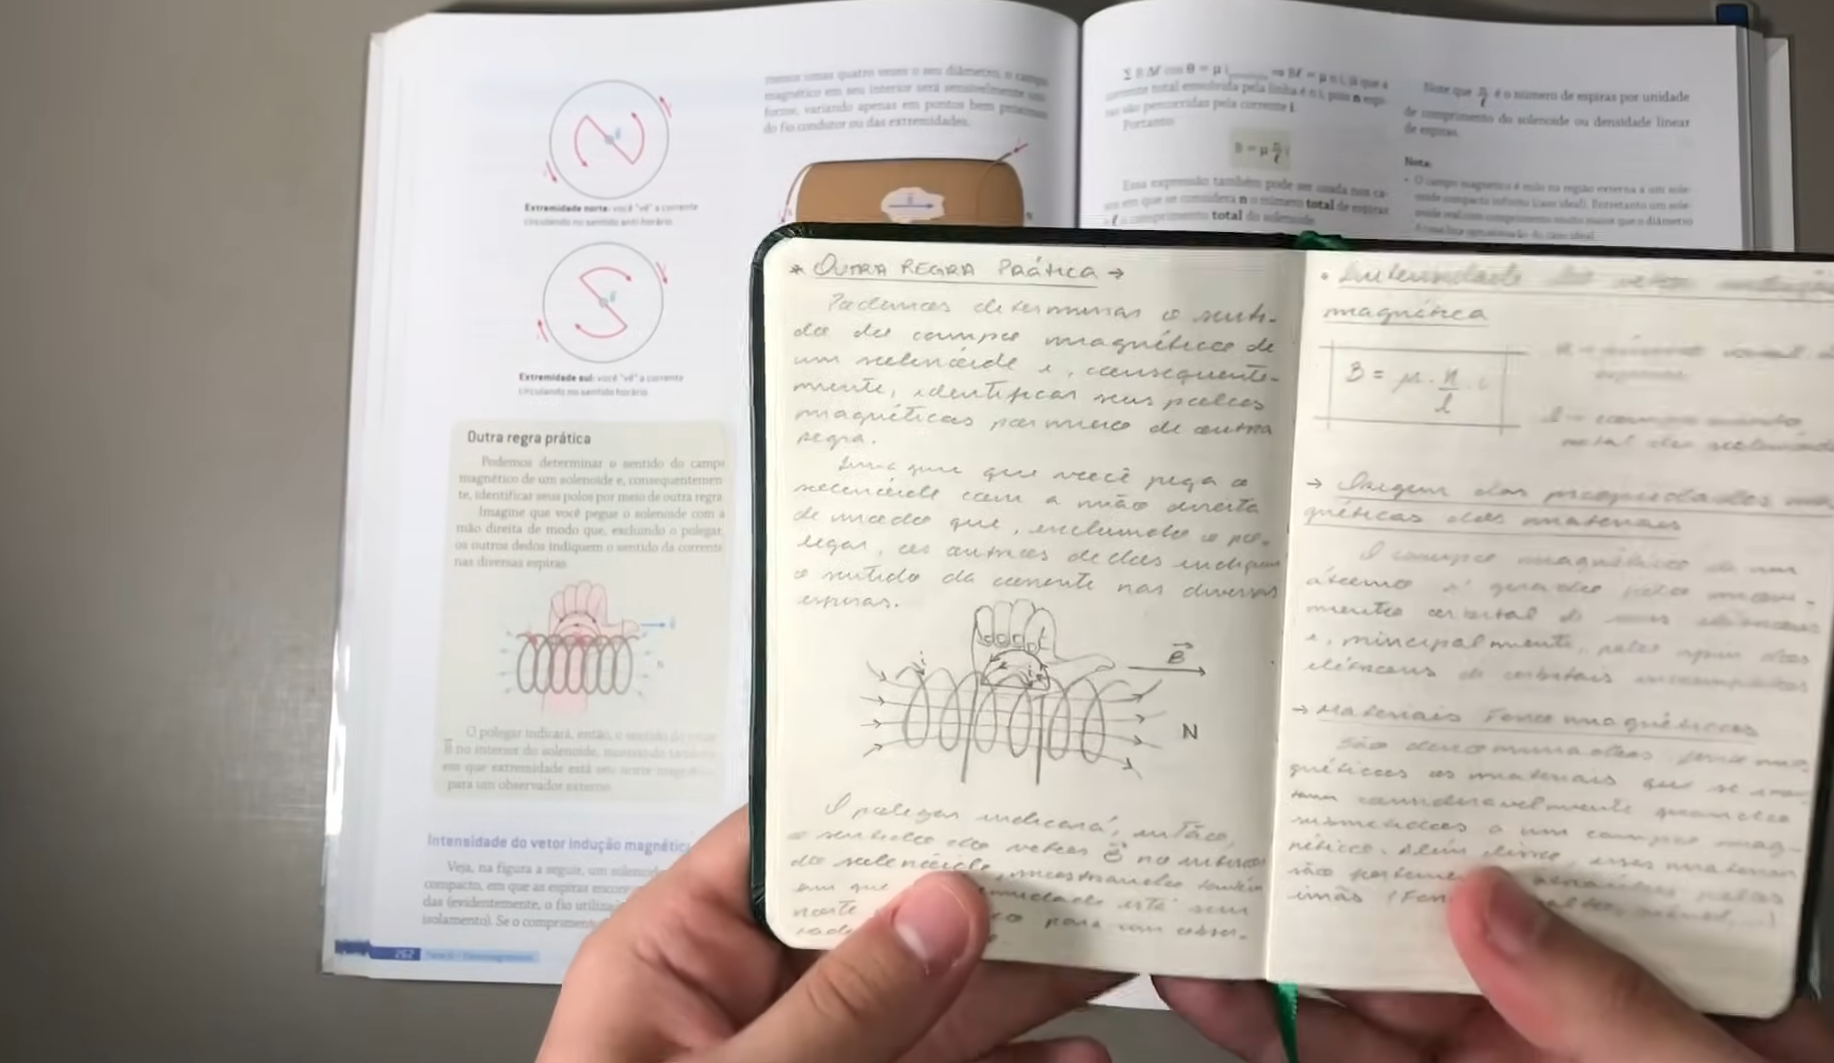 menos umas quatro vezes o seu diâmetro, o campo
magnético em seu interior será sensivelmente uni-
forme, variando apenas em pontos bem próximos
do fio condutor ou das extremidades.
Extremidade norte: você "vê" a corrente
circulando no sentido anti-horário.
Extremidade sul: você "vê" a corrente
circulando no sentido horário.
Outra regra prática
Podemos determinar o sentido do campo
magnético de um solenoide e, consequentemen
te, identificar seus polos por meio de outra regra
Imagine que você pegue o solenoide com a
mão direita de modo que, excluindo o polegar,
os outros dedos indiquem o sentido da corrente
nas diversas espiras.
N
O polegar indicará, então, o sentido do
B no interior do solenoide, mostrando
em que extremidade está seu norte
para um observador externo.
Intensidade do vetor indução magnétic
Veja, na figura a seguir, um solenoid
compacto, em que as espiras
das (evidentemente, o fio
isolamento). Se o compriment
262
Portanto:
B = μ n/ℓ i
Essa expressão também pode ser usada nos ca-
sos em que se considera n o número total de espiras
ℓ o comprimento total do solenoide.
Note que n/ℓ é o número de espiras por unidade
de comprimento do solenoide ou densidade linear
de espiras.
Nota:
• O campo magnético é nulo na região externa a um sole-
noide compacto infinito (caso ideal). Entretanto um sole-
noide real com comprimento muito maior que o diâmetro
é uma boa aproximação do caso ideal.
* OUTRA REGRA PRÁTICA →
Podemos determinar o senti-
do do campo magnético de
um solenóide e, consequente-
mente, identificar seus polos
magnéticos por meio de outra
regra.
Imagine que você pega o
solenóide com a mão direita
de modo que, excluindo o po-
legar, os outros dedos indiquem
o sentido da corrente nas diversas
espiras.
i
B
N
O polegar indicará, então,
o sentido do vetor B no interior
do solenóide, mostrando também
em que está seu
norte para um obser-
• Intensidade do vetor indução
magnética
B = μ . n/l . i
n → número total de
espiras
l → comprimento
total do solenóide
→ Origem das propriedades ma
gnéticas dos materiais
O campo magnético de um
átomo é gerado pelo movi-
mento orbital de seus elétrons
e, principalmente, pelo spin dos
elétrons de orbitais incompletos
→ Materiais Ferromagnéticos
São denominados ferroma
gnéticos os materiais que se
consideravelmente quando
submetidos a um campo mag-
nético. Além disso, esses materiais
são pelos
imãs